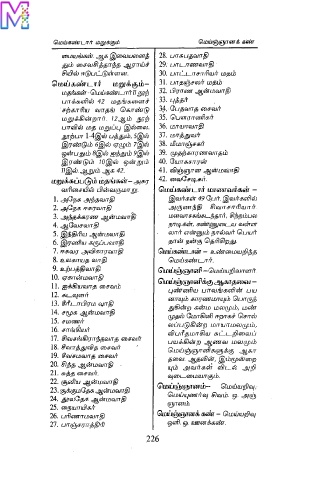 மெய்கண்டார் மறுக்கும்
மெய்ஞ்ஞானக் கண்
மையங்கள். ஆக இவையனைத்
தும் சைவசித்தாந்த ஆராய்ச்
சியில் ஈடுபட்டுள்ளன.
மெய்கண்டார் மறுக்கும்–
மதங்கள்- மெய்கண்டார் 11 நூற்
பாக்களில் 42 மதங்களைச்
சற்காரிய வாதங் கொண்டு
மறுக்கின்றார். 12ஆம் நூற்
பாவில் மத மறுப்பு இல்லை.
நூற்பா 1-4இல் பத்தும், 5இல்
இரண்டும் 6இல் ஏழும் 7இல்
ஒன்பதும் 8இல் ஐந்தும் 9இல்
இரண்டும் 10இல் ஒன்றும்
11இல், ஆறும் ஆக 42.
மறுக்கப்படும் மதங்கள்– அகர
வரிசையில் பின்வருமாறு.
1. அநேக அந்தவாதி
2. அநேக ஈசுரவாதி
3. அந்தக்கரண ஆன்மவாதி
4. ஆவேசவாதி
5. இந்திரிய ஆன்மவாதி
6. இரணிய கருப்பவாதி
7. ஈசுவர அவிகாரவாதி
8. உலகாயத வாதி
9. உற்பத்திவாதி
10. ஏகான்மவாதி
11. ஐக்கியவாத சைவம்
12. கடவுளர்
14. சமூக ஆன்மவாதி
15. சமணர்
16. சாங்கியர்
17. சிவசங்கிராந்தவாத சைவர்
18. சிவாத்துவித சைவர்
19. சிவசமவாத சைவர்
20. சித்த ஆன்மவாதி
21. சுத்த சைவர்
22. சூனிய ஆன்மவாதி
23. சூக்குமதேக ஆன்மவாதி
24. தூலதேக ஆன்மவாதி
25. நையாயிகர்
26. பரிணாமவாதி
27. பாஞ்சராத்திரி
28. பாசுபதவாதி
29. பாடாணவாதி
30. பாட்டாசாரியர் மதம்
31. பாதஞ்சலர் மதம்
32. பிராண ஆன்மவாதி
33. புத்தர்
34. பேதவாத சைவர்
35. பௌராணிகர்
36. மாயாவாதி
37. மாத்துவர்
38. மீமாஞ்சகர்
39. முதற்காரணவாதம்
40. யோகசாரன்
41. விஞ்ஞான ஆன்மவாதி
42. வைசேடிகர்.
மெய்கண்டார் மாணவர்கள் –
இவர்கள் 49 பேர். இவர்களில்
அருணந்தி சிவாசாரியார்
மனவாசகங்கடந்தார், சிற்றம்பல
நாடிகள், கண்ணுடைய வள்ள
லார் என்னும் நால்வர் பெயர்
தான் நன்கு தெரிகிறது.
மெய்கண்டான் – உண்மையறிந்த
மெய்கண்டார்.
மெய்ஞ்ஞானி –மெய்யறிவாளர்
மெய்ஞ்ஞானிக்கு ஆகாதவை–
புண்ணிய பாவங்களின் பய
னாவும் காரணமாயும் பொருந்
துகின்ற கன்ம மலமும், மண்
முதல் மோகினி ஈறாகச் சொல்
லப்படுகின்ற மாயாமலமும்,
விபரீதமாகிய சுட்டறிவைப்
பயக்கின்ற ஆணவ மலமும்
மெய்ஞ்ஞானிகளுக்கு ஆகா
தவை. ஆதலின், இம்மூன்றை
யும் அவர்கள் விடல் அறி
வுடைமையாகும்.
மெய்ஞ்ஞானம்– மெய்யறிவு,
மெய்யுணர்வு சிவம். ஒ. அஞ்
ஞானம்.
மெய்ஞ்ஞானக் கண் – மெய்யறிவு
ஒளி, ஒ. ஊனக்கண்.
226